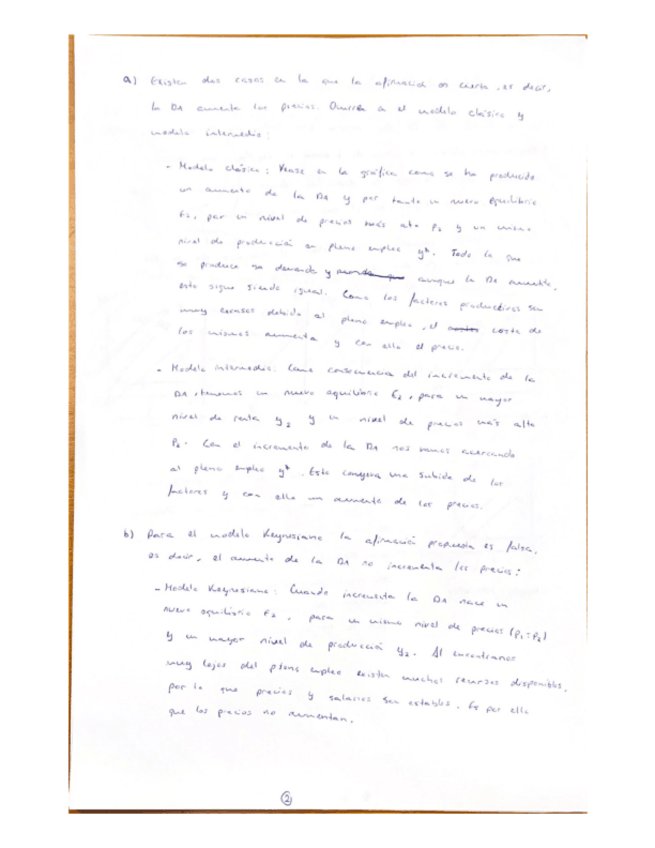 a) Existen dos casos en la que la afirmación es cierta, es decir,
la DA aumenta los precios. Ocurre en el modelo clásico y
modelo intermedio:
- Modelo clásico: Vease en la gráfica como se ha producido
un aumento de la DA y por tanto un nuevo equilibrio
E₂, por un nivel de precios más alto P₂ y un mismo
nivel de producción en pleno empleo y*. Todo lo que
se produce se demanda y aunque la DA aumenta,
esto sigue siendo igual. Como los factores productivos son
muy escasos debido al pleno empleo, el coste de
los mismos aumenta y con ello el precio.
- Modelo intermedio: Como consecuencia del incremento de la
DA, tenemos un nuevo equilibrio E₂, para un mayor
nivel de renta y₂ y un nivel de precios más alto
P₂. Con el incremento de la DA nos vamos acercando
al pleno empleo y*. Esto conlleva una subida de los
factores y con ello un aumento de los precios.
b) Para el modelo Keynesiano la afirmación propuesta es falsa,
es decir, el aumento de la DA no incrementa los precios:
- Modelo Keynesiano: Cuando incrementa la DA nace un
nuevo equilibrio E₂, para un mismo nivel de precios (P₁=P₂)
y un mayor nivel de producción y₂. Al encontrarnos
muy lejos del pleno empleo existen muchos recursos disponibles,
por lo que precios y salarios son estables. Es por ello
que los precios no aumentan.
2